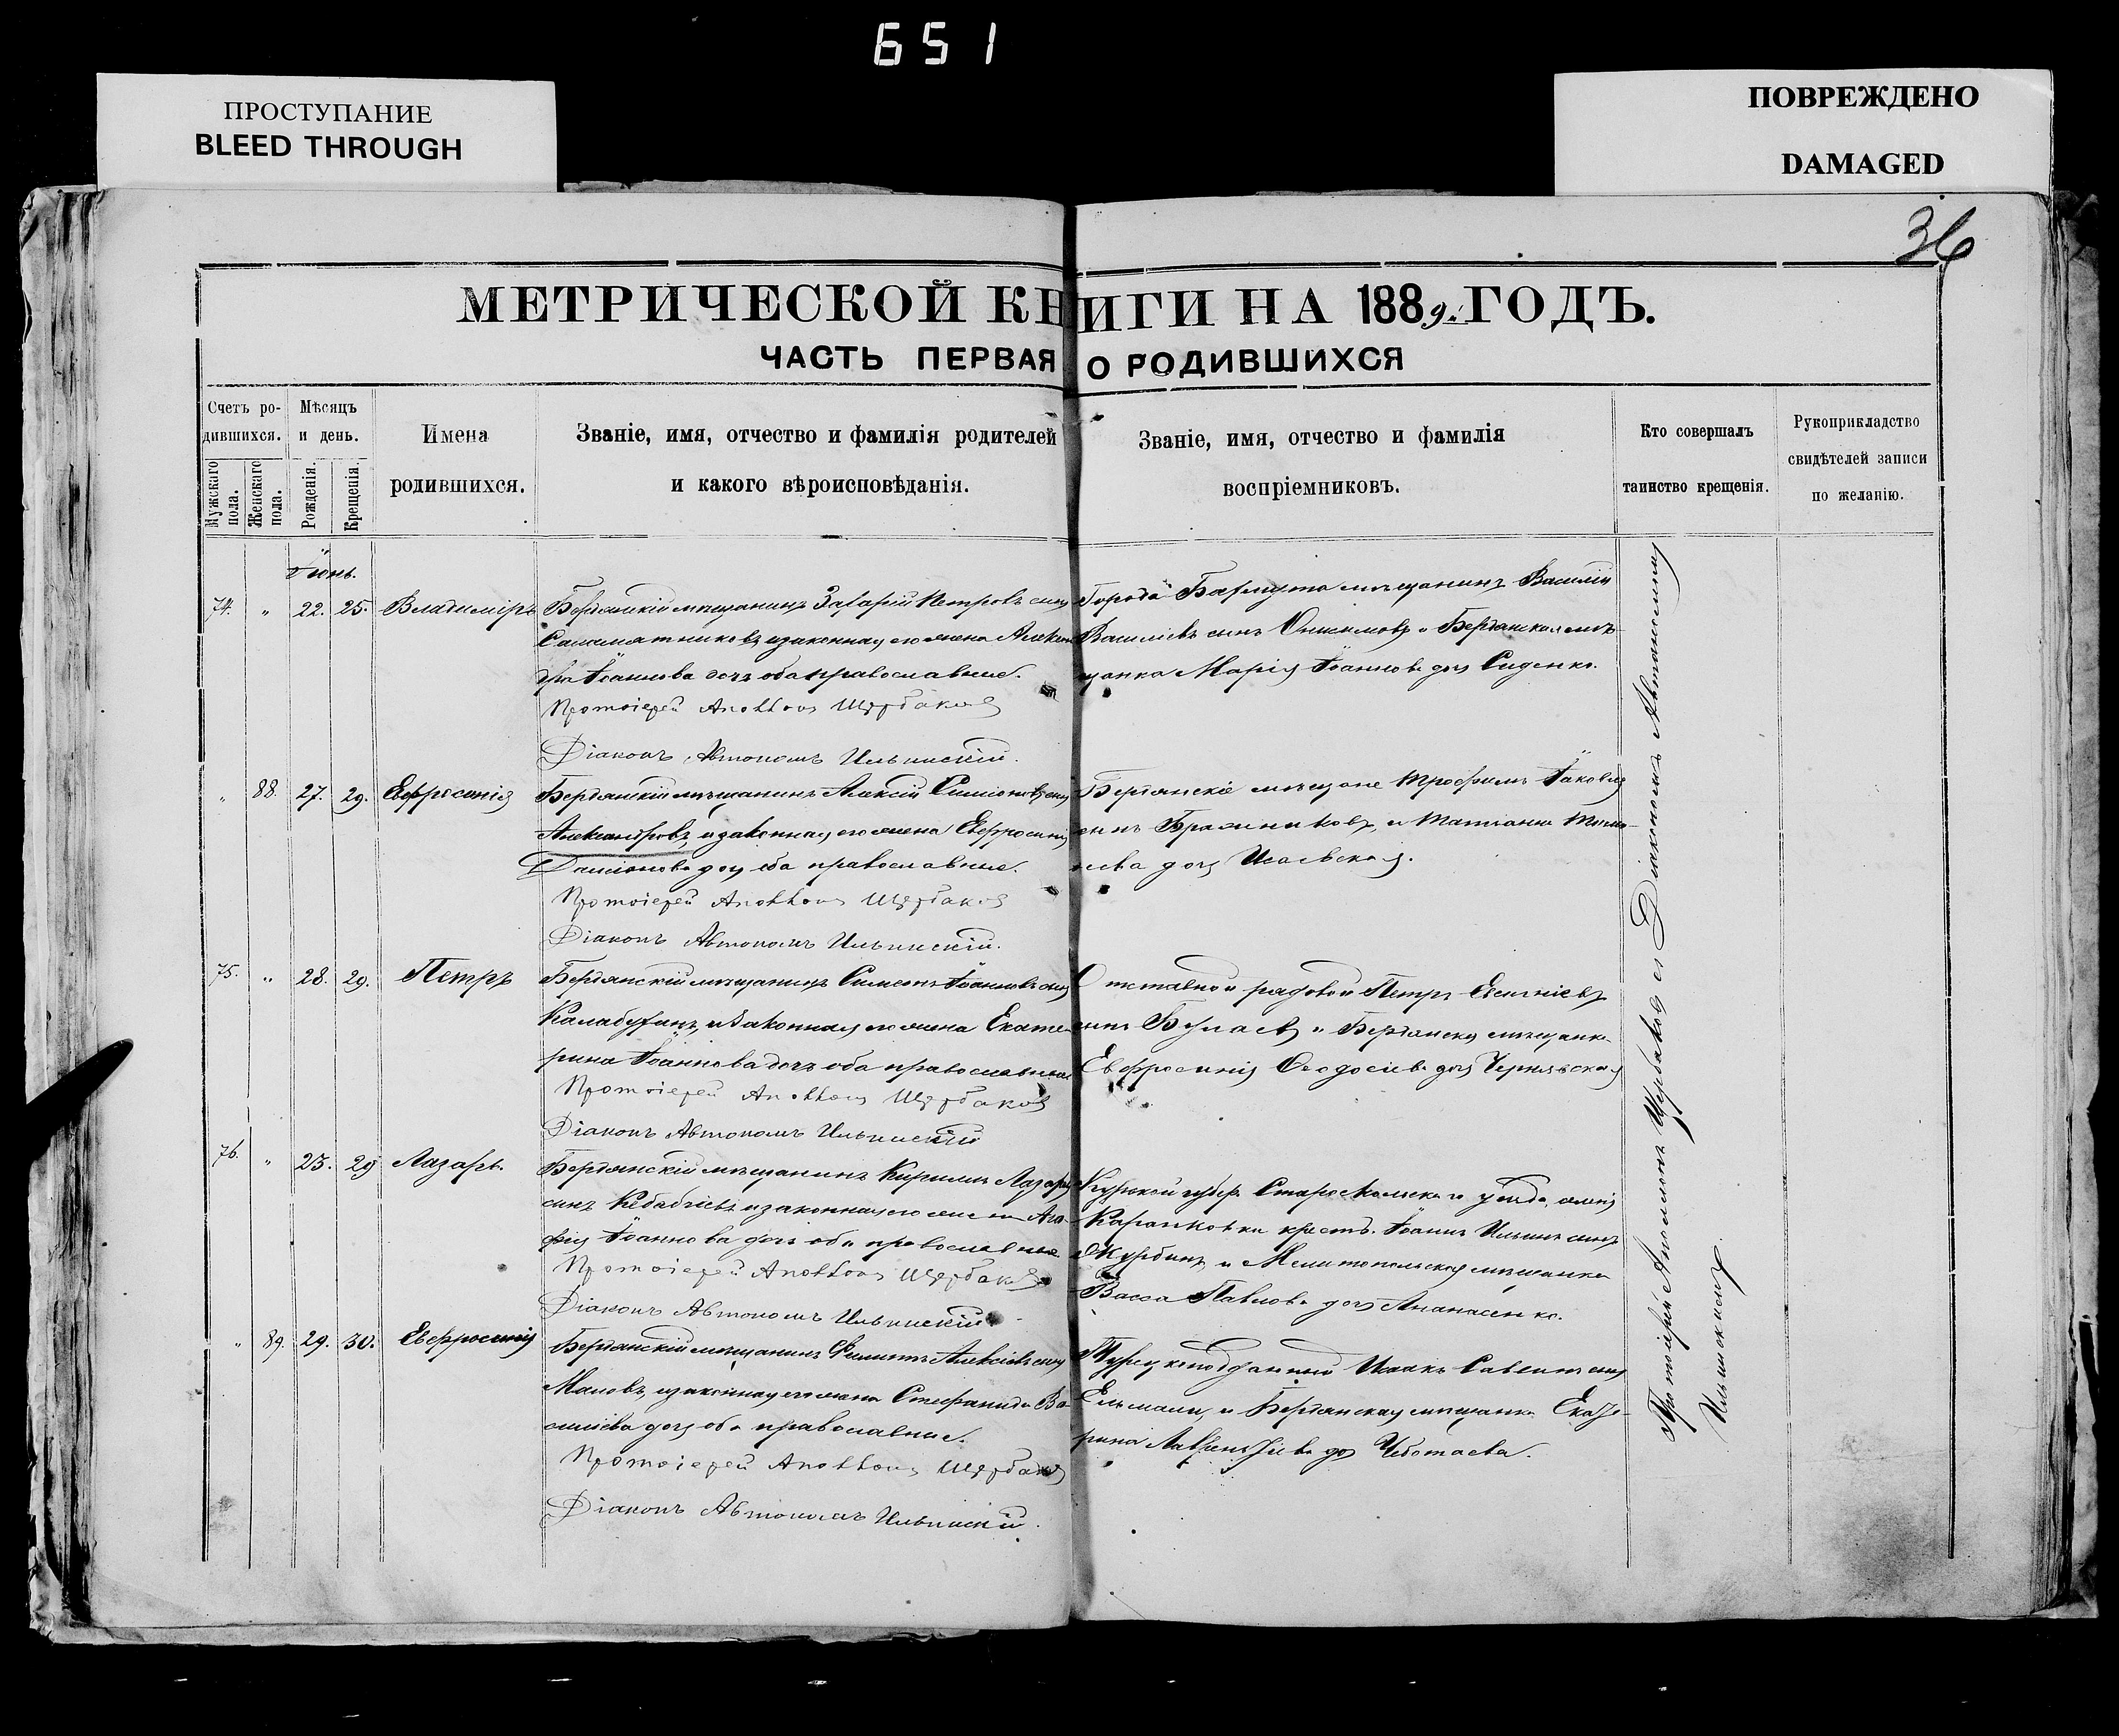 651
ПРОСТУПАНИЕ
BLEED THROUGH
ПОВРЕЖДЕНО
DAMAGED
36
МЕТРИЧЕСКОЙ КНИГИ НА 1889 ГОДЪ.
ЧАСТЬ ПЕРВАЯ О РОДИВШИХСЯ
Счетъ родившихся.
Мужскаго пола.
Женскаго пола.
Мѣсяцъ и день.
Рожденія.
Крещенія.
Имена
родившихся.
Званіе, имя, отчество и фамилія родителей
и какого вѣроисповѣданія.
Званіе, имя, отчество и фамилія
воспріемниковъ.
Кто совершалъ
таинство крещенія.
Рукоприкладство
свидѣтелей записи
по желанію.
Іюнь.
74. " 22. 25. Владиміръ
Бердянскій мѣщанинъ Захарій Петровъ сынъ
и законная его жена Алексан
дра Іоаннова дочь оба православные.
Протоіерей Аполлонъ Щербаковъ
Діаконъ Автономъ Ильинскій.
Города Бахмута мѣщанинъ Василій
Василіевъ сынъ Онисимовъ и Бердянская мѣ-
щанка Марія Іоаннова дочь Сиденко.
" 88. 27. 29. Евфросинія
Бердянскій мѣщанинъ Алексій Симіоновъ сынъ
Александровъ, и законная его жена Евфросинія
Даміанова дочь оба православные.
Протоіерей Аполлонъ Щербаковъ
Діаконъ Автономъ Ильинскій.
Бердянскіе мѣщане Трофимъ Іаковлевъ
сынъ Бражниковъ, и Татіана
дочь Исаевская.
75. " 28. 29. Петръ
Бердянскій мѣщанинъ Симеонъ Іоанновъ сынъ
Калабухинъ, и законная его жена Екате-
рина Іоаннова дочь оба православные
Протоіерей Аполлонъ Щербаковъ
Діаконъ Автономъ Ильинскій
Отставной рядовой Петръ
сынъ и Бердянская мѣщанка
Евфросинія Ѳеодосіева дочь Чернявская
76. " 23. 29 Лазарь.
Бердянскій мѣщанинъ Кириллъ Лазаревъ
сынъ и законная его жена Ага-
фія Іоаннова дочь оба православные
Протоіерей Аполлонъ Щербаковъ
Діаконъ Автономъ Ильинскій.
Курской губер. Старооскольскаго уѣзда,
крест. Іоаннъ Ильинъ сынъ
и Мелитопольская мѣщанка
Васса Павлова дочь Ананасенко.
" 89. 29. 30. Евфросинія
Бердянскій мѣщанинъ Филиппъ Алексіевъ сынъ
и законная его жена Стефанида Ва-
силіева дочь оба православные.
Протоіерей Аполлонъ Щербаковъ
Діаконъ Автономъ Ильинскій.
Турецкоподданный Исаакъ сынъ
и Бердянская мѣщанка Екате-
рина Лаврентіева дочь Чеботаева.
Протоіерей Аполлонъ Щербаковъ съ Діакономъ Автономомъ
Ильинскимъ.